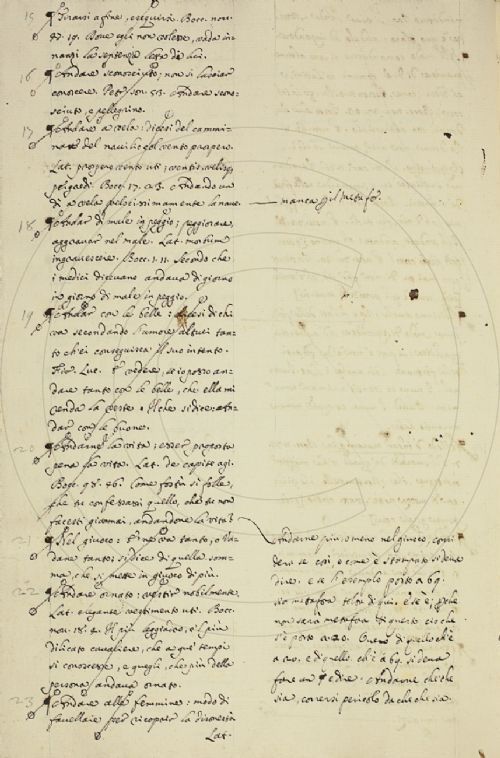 15 ¶ Tirarsi a fine, eseguirsi. Bocc. nov.
27. 19. Dove egli non volesse, vada in-
nanzi la sentenzia letta di lei.
16 ¶ Andare sconosciuto; non si lasciar
conoscere. Petr. son. 53. Andare scono-
sciuto, e pellegrino.
17 ¶ Andare a vela; dicesi del cammi-
nare del navilio col vento prospero.
Lat. prospero vento uti; ventis velisq.
Bocc. 17. Andando un
dì a vela velocissimamente la nave.
manca il metafor.
18 ¶ Andar di male in peggio; peggiorare,
aggravar nel male. Lat. morbum
ingravescere. Bocc. 1. 11. Secondo che
i medici dicevano andava di giorno
in giorno di male in peggio.
19 ¶ Andar con le belle; dicesi di chi
va secondando l'umore altrui tan-
to ch'ei conseguisca il suo intento.
Fir. Luc. vedere, se io posso an-
dare tanto con le belle, che ella mi
renda la veste. Il che si dice: an-
dar con le buone.
20 ¶ Andarne la vita; esser proposta
pena la vita. Lat. de capite agi.
Bocc. 98. 46. Come fostu sì folle,
che tu confessassi quello, che tu non
facesti giammai, andandone la vita?
21 ¶ Nel giuoco: metter tanto, o An-
dare tanto; si dice di quella som-
ma, che si mette in giuoco di più.
22 ¶ Andare ornato; vestir nobilmente.
Lat. elegante vestimento uti. Bocc.
nov. 18. 4. Il più leggiadro, e 'l più
dilicato cavaliere, che a que' tempi
si conoscesse, e quegli, che più della
persona andava ornato.
23 ¶ Andare alle femmine: modo di
favellare per ricoprir la disonestà
Lat.
Andarne più, o meno nel giuoco,
dera se così, o come è stampato si deva
dire. e se l'esempio posto a 69.
sia metafora tolta di qui. e se è; perché
non sarà metafora di questo ciò che
si è posto
a e di quello ch'è a 69. si deva
fare un e dire. Andarne che che
sia, corrersi pericolo di che che sia.